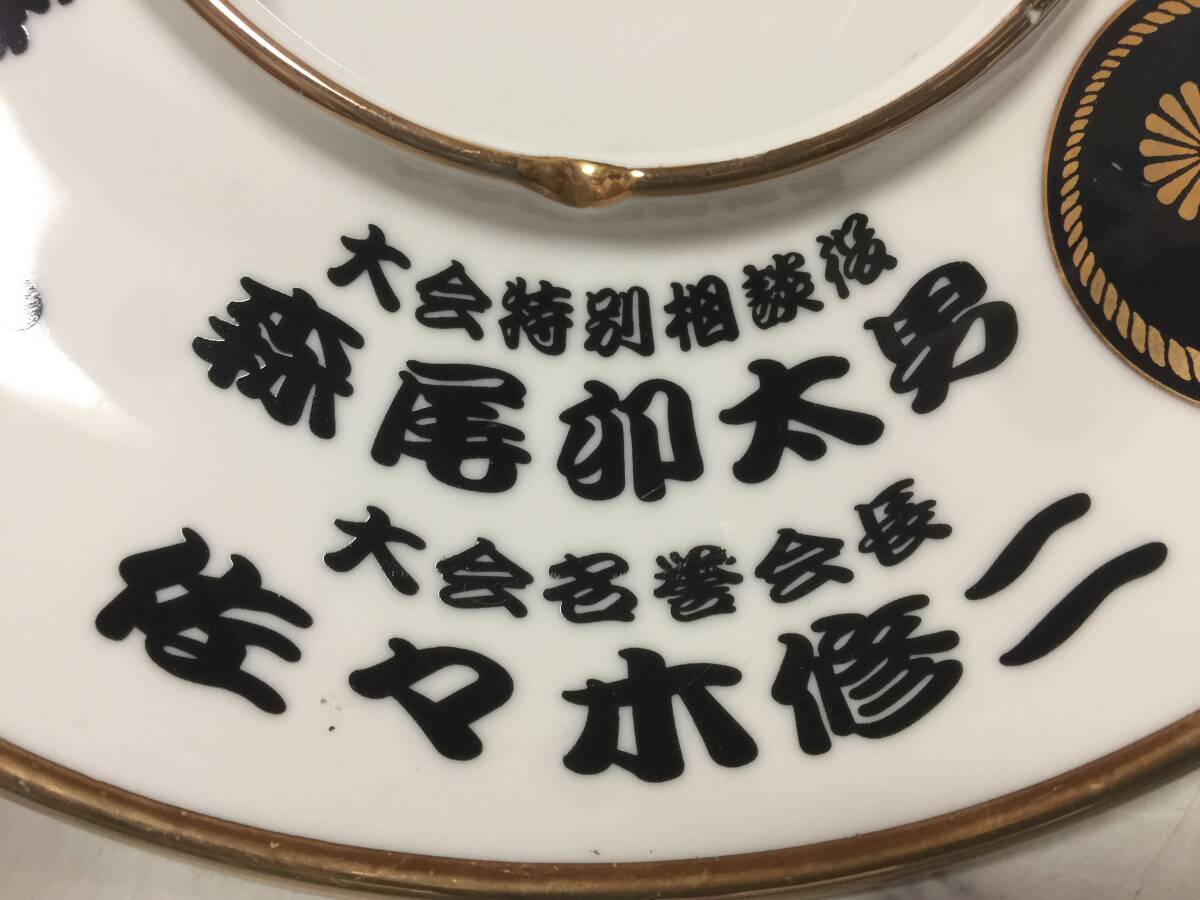 大会特別相談役
森尾卯太男
大会名誉会長
佐々木修二